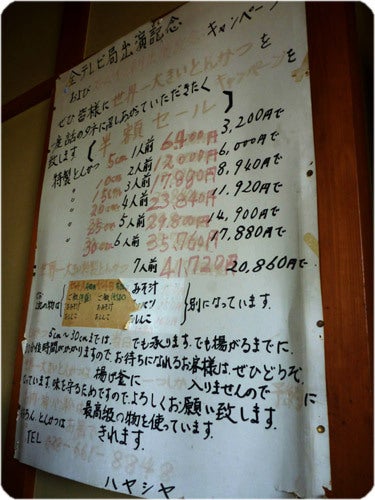 全テレビ局出演記念
および キャンペーン
ぜひ皆様に世界一大きいとんかつを
度話のタネに召しあがっていただきたく キャンペーンを
致します 半額セール
特製とんかつ 5cm 1人前 6400円 3,200円で
〃 10cm 2人前 12000円 6,000円で
〃 15cm 3人前 17.880円 8,940円で
〃 20cm 4人前 23.840円 11.920円で
〃 25cm 5人前 29.800円 14,900円で
〃 30cm 6人前 35.760円 17.880円で
世界一大特製とんかつ 7人前 41720円 20,860円で
次の物は みそ汁 別になっています
5cm〜30cmまでは でも承ります。でも揚がるまでに、
時間がかかりますので、お待ちになれるお客様は、ぜひどうぞ
揚げ釜に 入りませんので
ています。味を守るためですので、よろしくお願い致します。
とんかつは 最高級の物を使っています。
きれます。
TEL 028-661-8848
ハヤシヤ